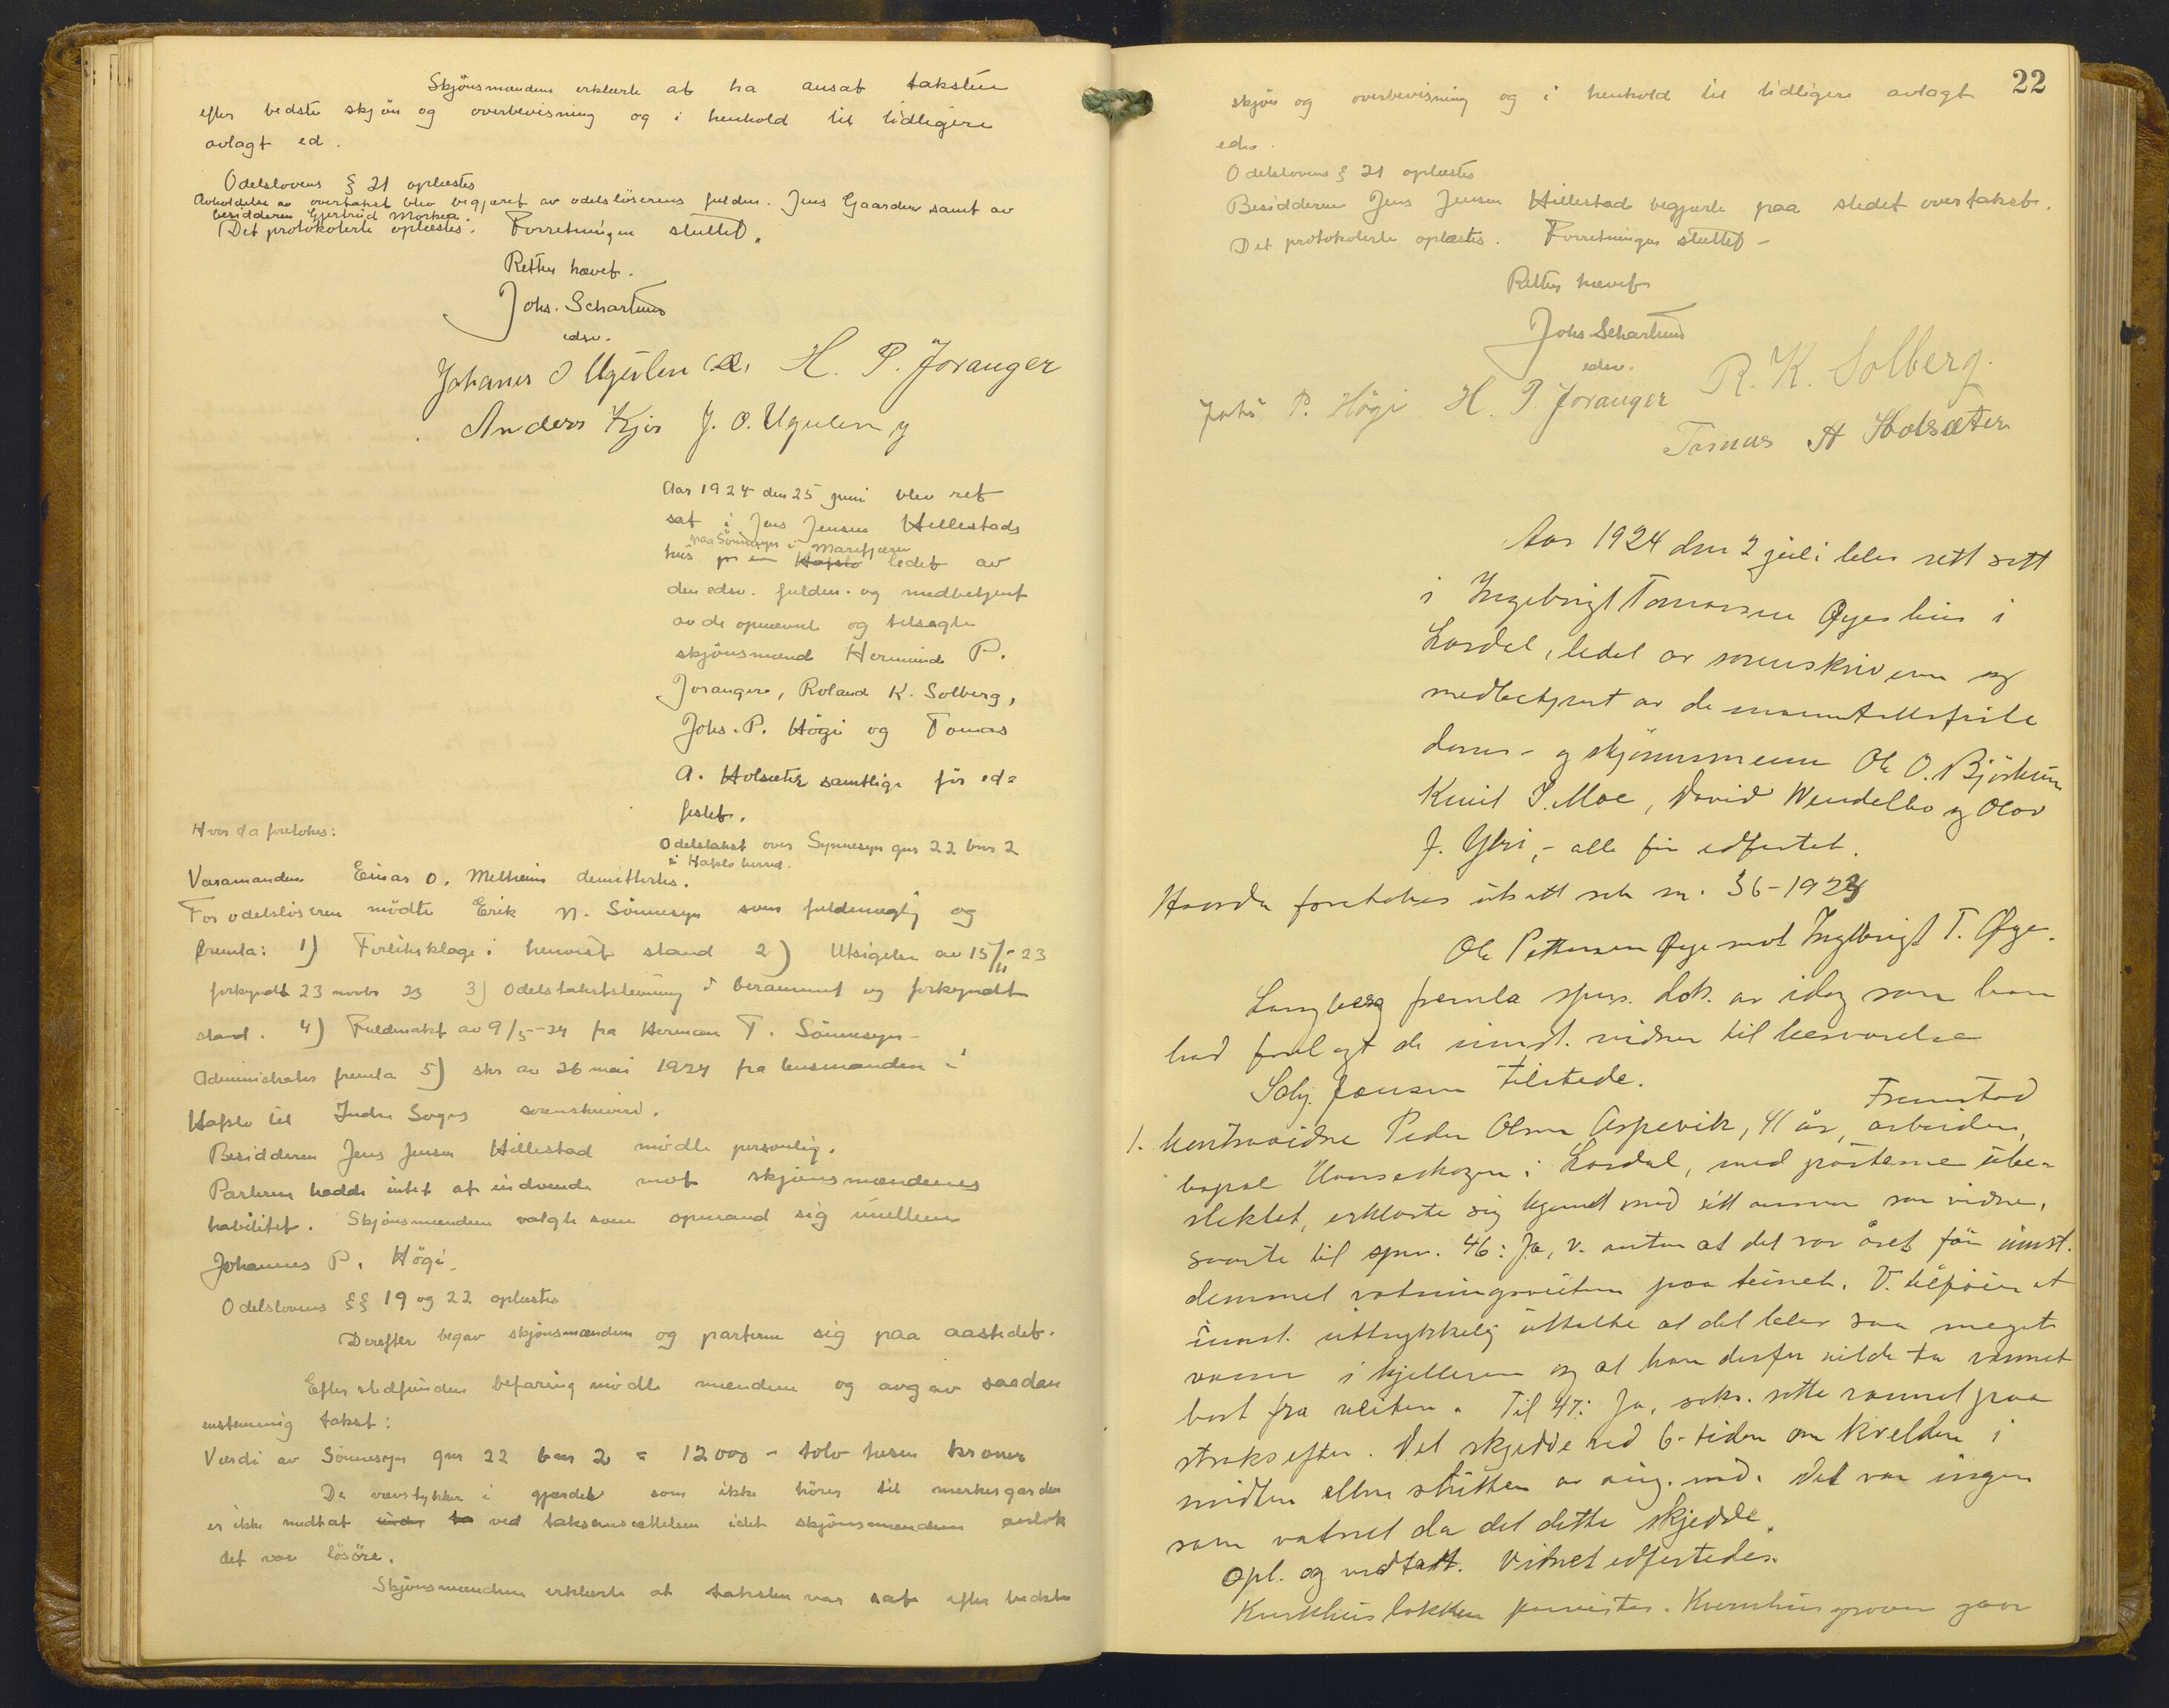 Skjönsmændene erklærte at ha ansat taksten
efter bedste skjön og overbevisning og i henhold til tidligere
avlagt ed.
Odelslovens § 21 oplæstes
Avholdelse av overtakst blev begjæret av odelslöserens fuldm. Jens Gaarden samt av
besidderen Gjertrud Mörkea.
Det protokolerte oplæstes. Forretningen sluttet.
Retten hævet.
Johs. Scharlund
edsv.
Johanes O Ugulen H. P. Joranger
Anders Kjos J. O. Ugulen
Aar 1924 den 25 juni blev ret
sat i Jens Jensen Hillestads
paa Sönnesyn i Marifjæren
hus ledet av
den edsv. fuldm. og medbetjent
av de opnævnte og tilsagte
skjönsmænd Hermund P.
Joranger, Roland K. Solberg,
Johs. P. Högi og Tomas
A. Holsæter samtlige för ed=
festet.
Hvor da foretokes:
Odelstakst over Synnesyn gnr 22 bnr 2
i Hafslo herred.
Varamanden Einar O. Melheim demittertes.
For odelslöseren mödte Erik N. Sönnesyn som fuldmægtig og
fremla: 1) Forliksklage i henvist stand 2) Utsigelse av 15/11-23
forkyndt 23 novbr 23 3) Odelstakststevning i berammet og forkyndt
stand. 4) Fuldmakt av 9/5-24 fra Herman T. Sönnesyn -
Administrator fremla 5) skr av 26 mai 1924 fra lensmanden i
Hafslo til Indre Sogns sorenskriveri.
Besidderen Jens Jensen Hillestad mödte personlig.
Parterne hadde intet at indvende mot skjönsmændenes
habilitet. Skjönsmændene valgte som opmand sig imellem
Johannes P. Högi.
Odelslovens §§ 19 og 22 oplæstes
Derefter begav skjönsmændene og parterne sig paa aastedet.
Efter stedfunden befaring mödte mændene og avgav saadan
enstemmig takst:
Værdi av Sönnesyn gnr 22 bnr 2 = 12000 - tolv tusen kroner
De vævstykker i gjærdet som ikke hörer til merkesgarden
er ikke medtat ved taksansættelsen idet skjönsmændene antok
det var lösöre.
Skjönsmændene erklærte at taksten var sat efter bedste
22
skjön og overbevisning og i henhold til tidligere avlagt
eder.
Odelslovens § 21 oplæstes
Besidderen Jens Jensen Hillestad begjærte paa stedet overtakst.
Det protokolerte oplæstes. Forretningen sluttet -
Retten hævet
Johs Scharlund
edsv.
R. K. Solberg.
Johs P. Högi H. P. Joranger
Tomas A Holsæter
Aar 1924 den 2 juli blev rett sett
i Ingebrigt Tomassen Øyes hus i
Lærdal, ledet av sorenskriveren og
medbetjent av de manntallsførte
doms- og skjönnsmenn Ole O. Bjørkum
Knut P. Moe, David Wendelbo og Olav
J. Ylvi,- alle för edfestet.
Hvorda foretokes utsatt sak nr. 36-1923
Ole Pettersen Øye mot Ingebrigt T. Øye.
Langberg fremla spm. dok. av idag som han
had forelagt de innst. vidner til besvarelse
Solg. Jensen tilstede.
Fremstod
1. kontravidne Peder Olsen Aspevik, 41 år, arbeider,
bopæl Hanseskogen i Lærdal, med parterne ube-
slektet, erklærte sig kjendt med sitt ansvar som vidne,
svarte til spm. 46: Ja, v. antar at det var året för innst.
demmet vatningsveiten paa teinet. V. tilföier at
innst. uttrykkelig uttalte at det blev saa meget
vann i kjelleren og at han derfor vilde ta vannet
bort fra veiten. Til 47: Ja, saks. sette vannet paa
straks efter. Det skjedde ved 6-tiden om kvelden i
midten eller slutten av aug. md. Det var ingen
som vatnet da det dette skjedde.
Opl. og vedtatt. Vidnet edfestedes.
Kvernhuslokken paavistes. Kvernhusgroven gaar